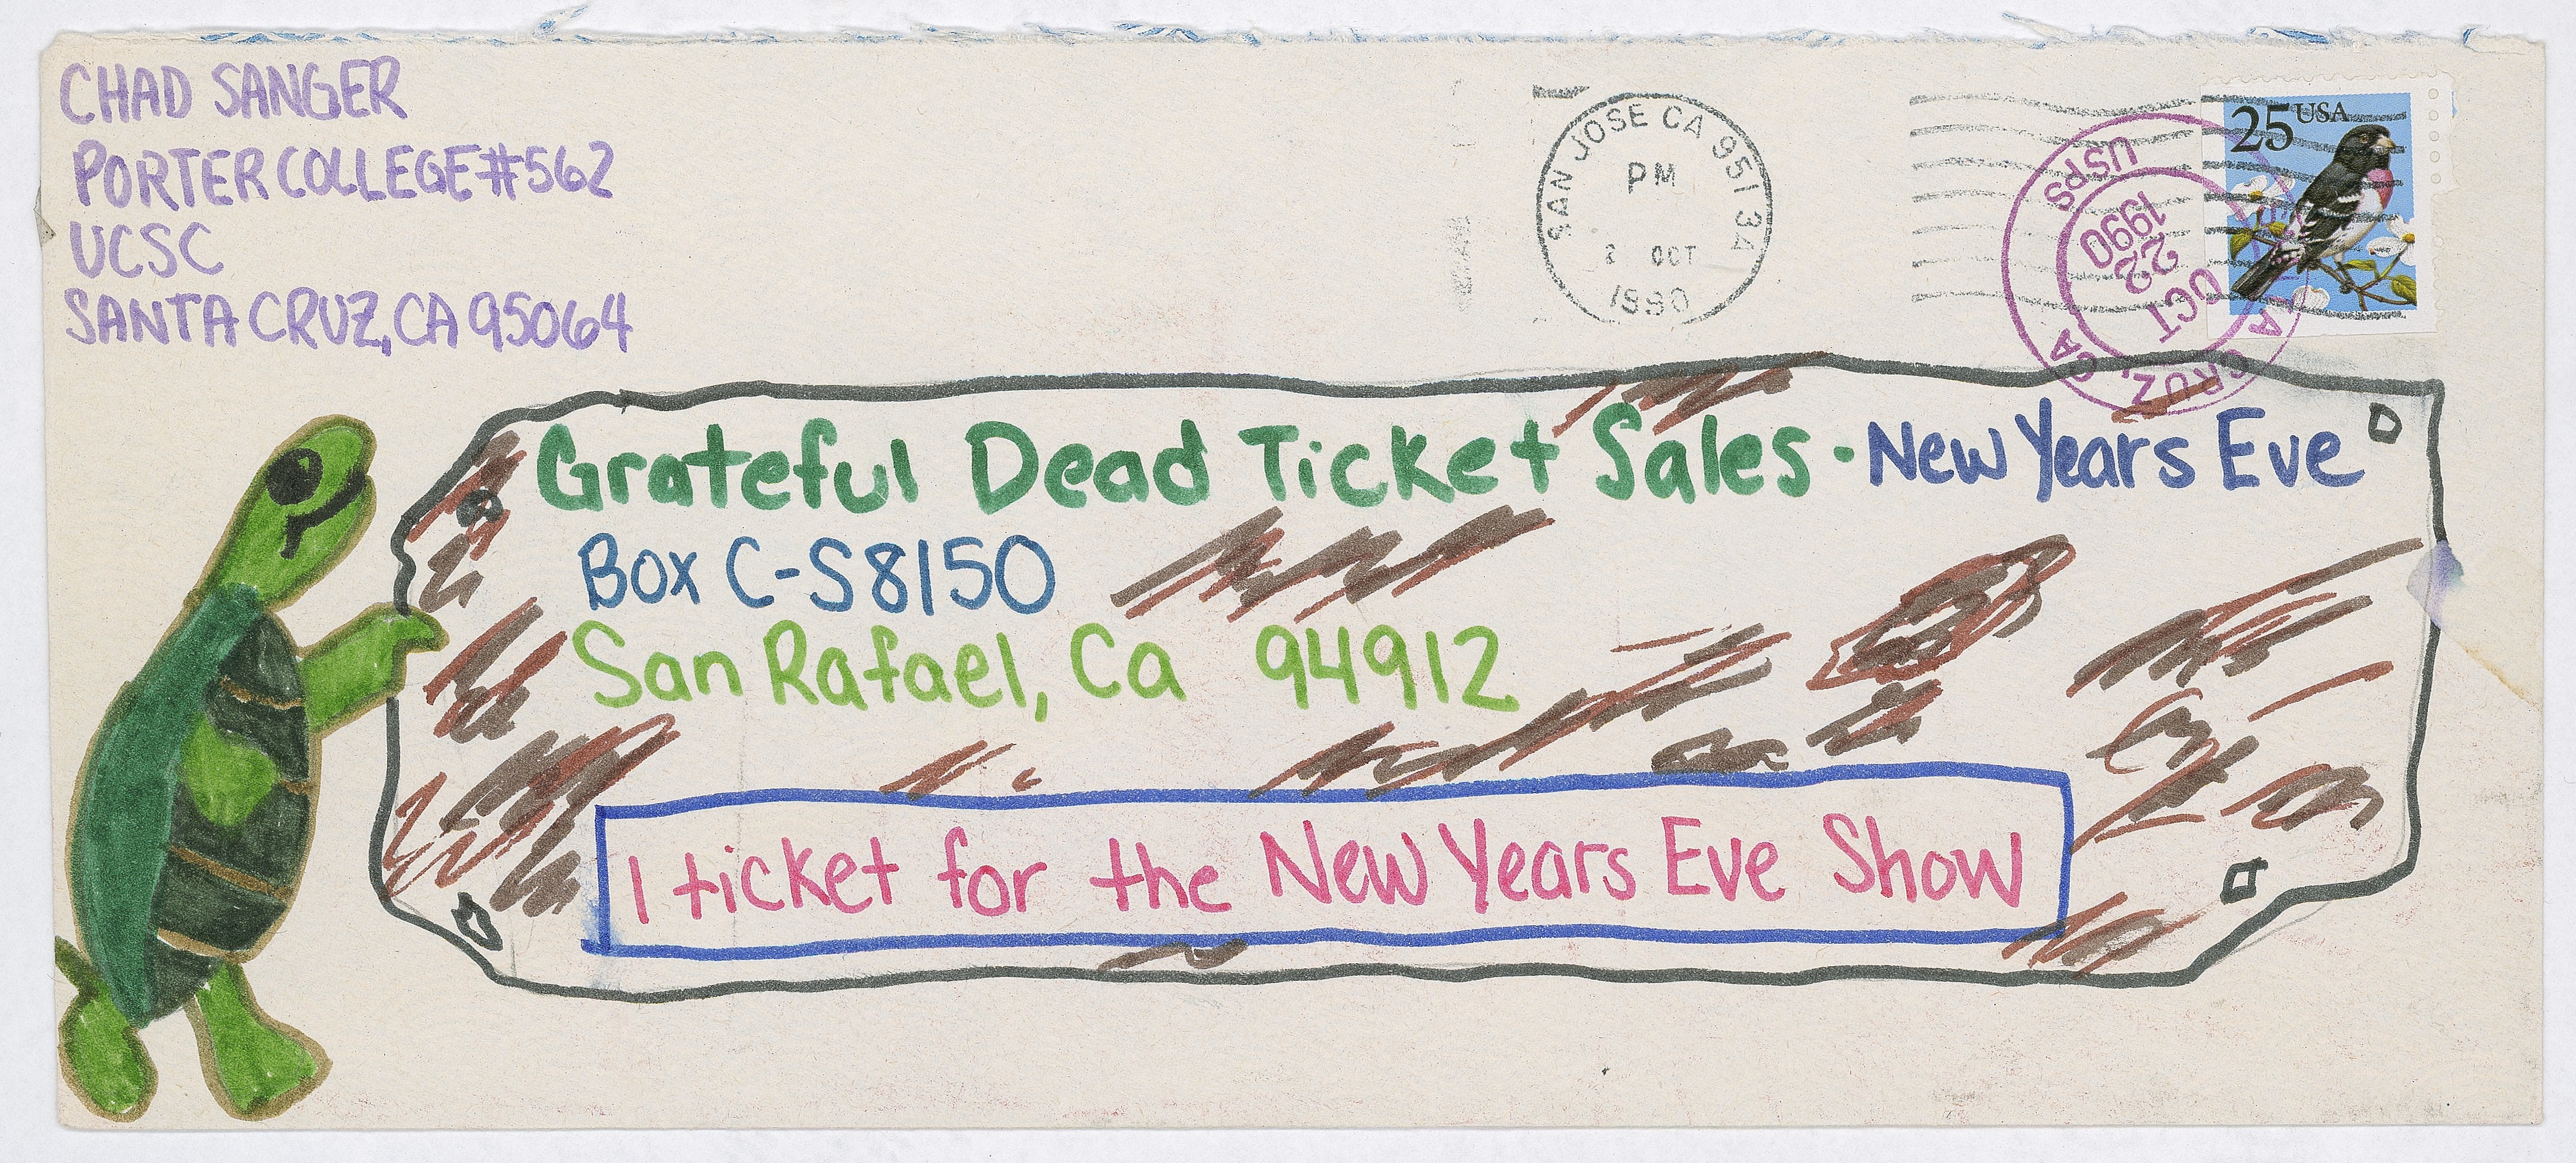 CHAD SANGER
PORTER COLLEGE #562
UCSC
SANTA CRUZ, CA 95064
SAN JOSE CA 951 3A
PM
2 OCT
1990
25 USA
USPS
OCT
22
1990
CRUZ, CA
Grateful Dead Ticket Sales - New Years Eve
Box C-S8150
San Rafael, Ca 94912
1 ticket for the New Years Eve Show